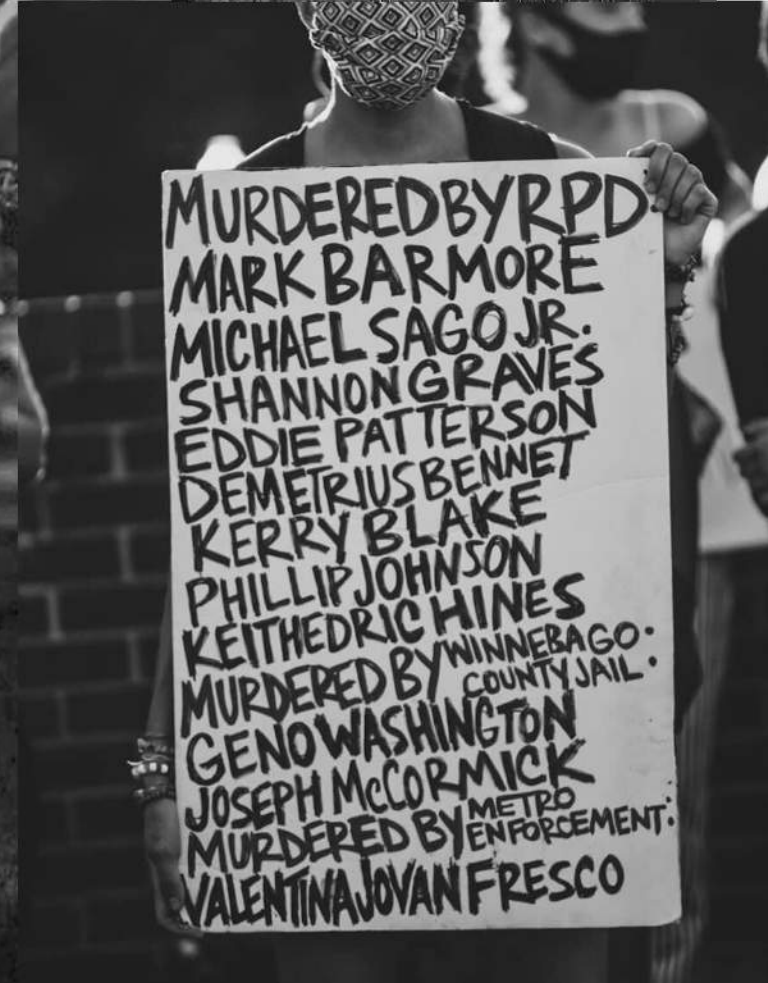 MURDERED BY RPD
MARK BARMORE
MICHAEL SAGO JR.
SHANNON GRAVES
EDDIE PATTERSON
DEMETRIUS BENNET
KERRY BLAKE
PHILLIP JOHNSON
KEITHEDRIC HINES
MURDERED BY WINNEBAGO.
COUNTY JAIL:
GENO WASHINGTON
JOSEPH McCORMICK
MURDERED BY METRO
ENFORCEMENT:
VALENTINA JOVAN FRESCO